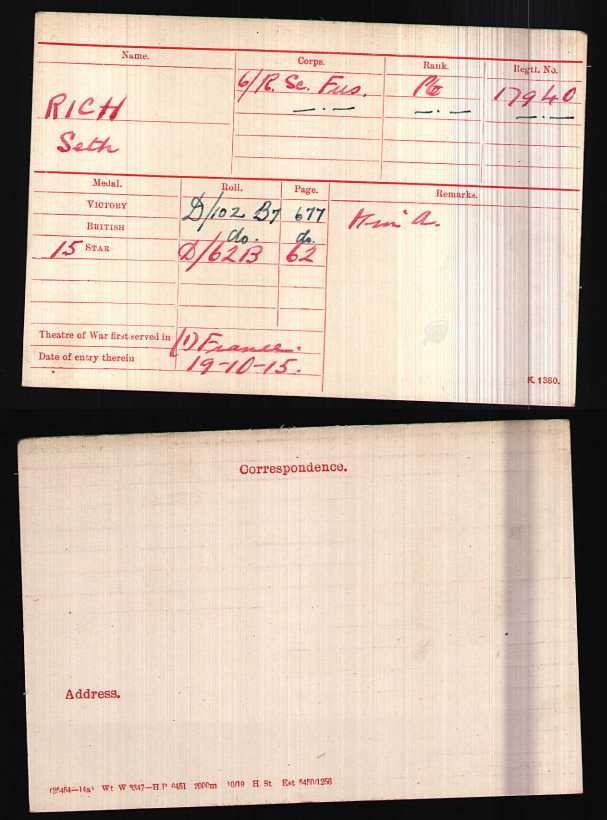 Name. Corps. Rank. Regtl. No.
6/R. Sc. Fus. Pte 17940
RICH —.— —.— —.—
Seth
Medal. Roll. Page. Remarks.
VICTORY D/102 B7 677
BRITISH do. do.
15 STAR D/62B 62
Theatre of War first served in (1) France.
Date of entry therein 19-10-15.
K. 1380.
Correspondence.
Address.
Wt W 3347—H.P. 2000m 10/19 H. St.